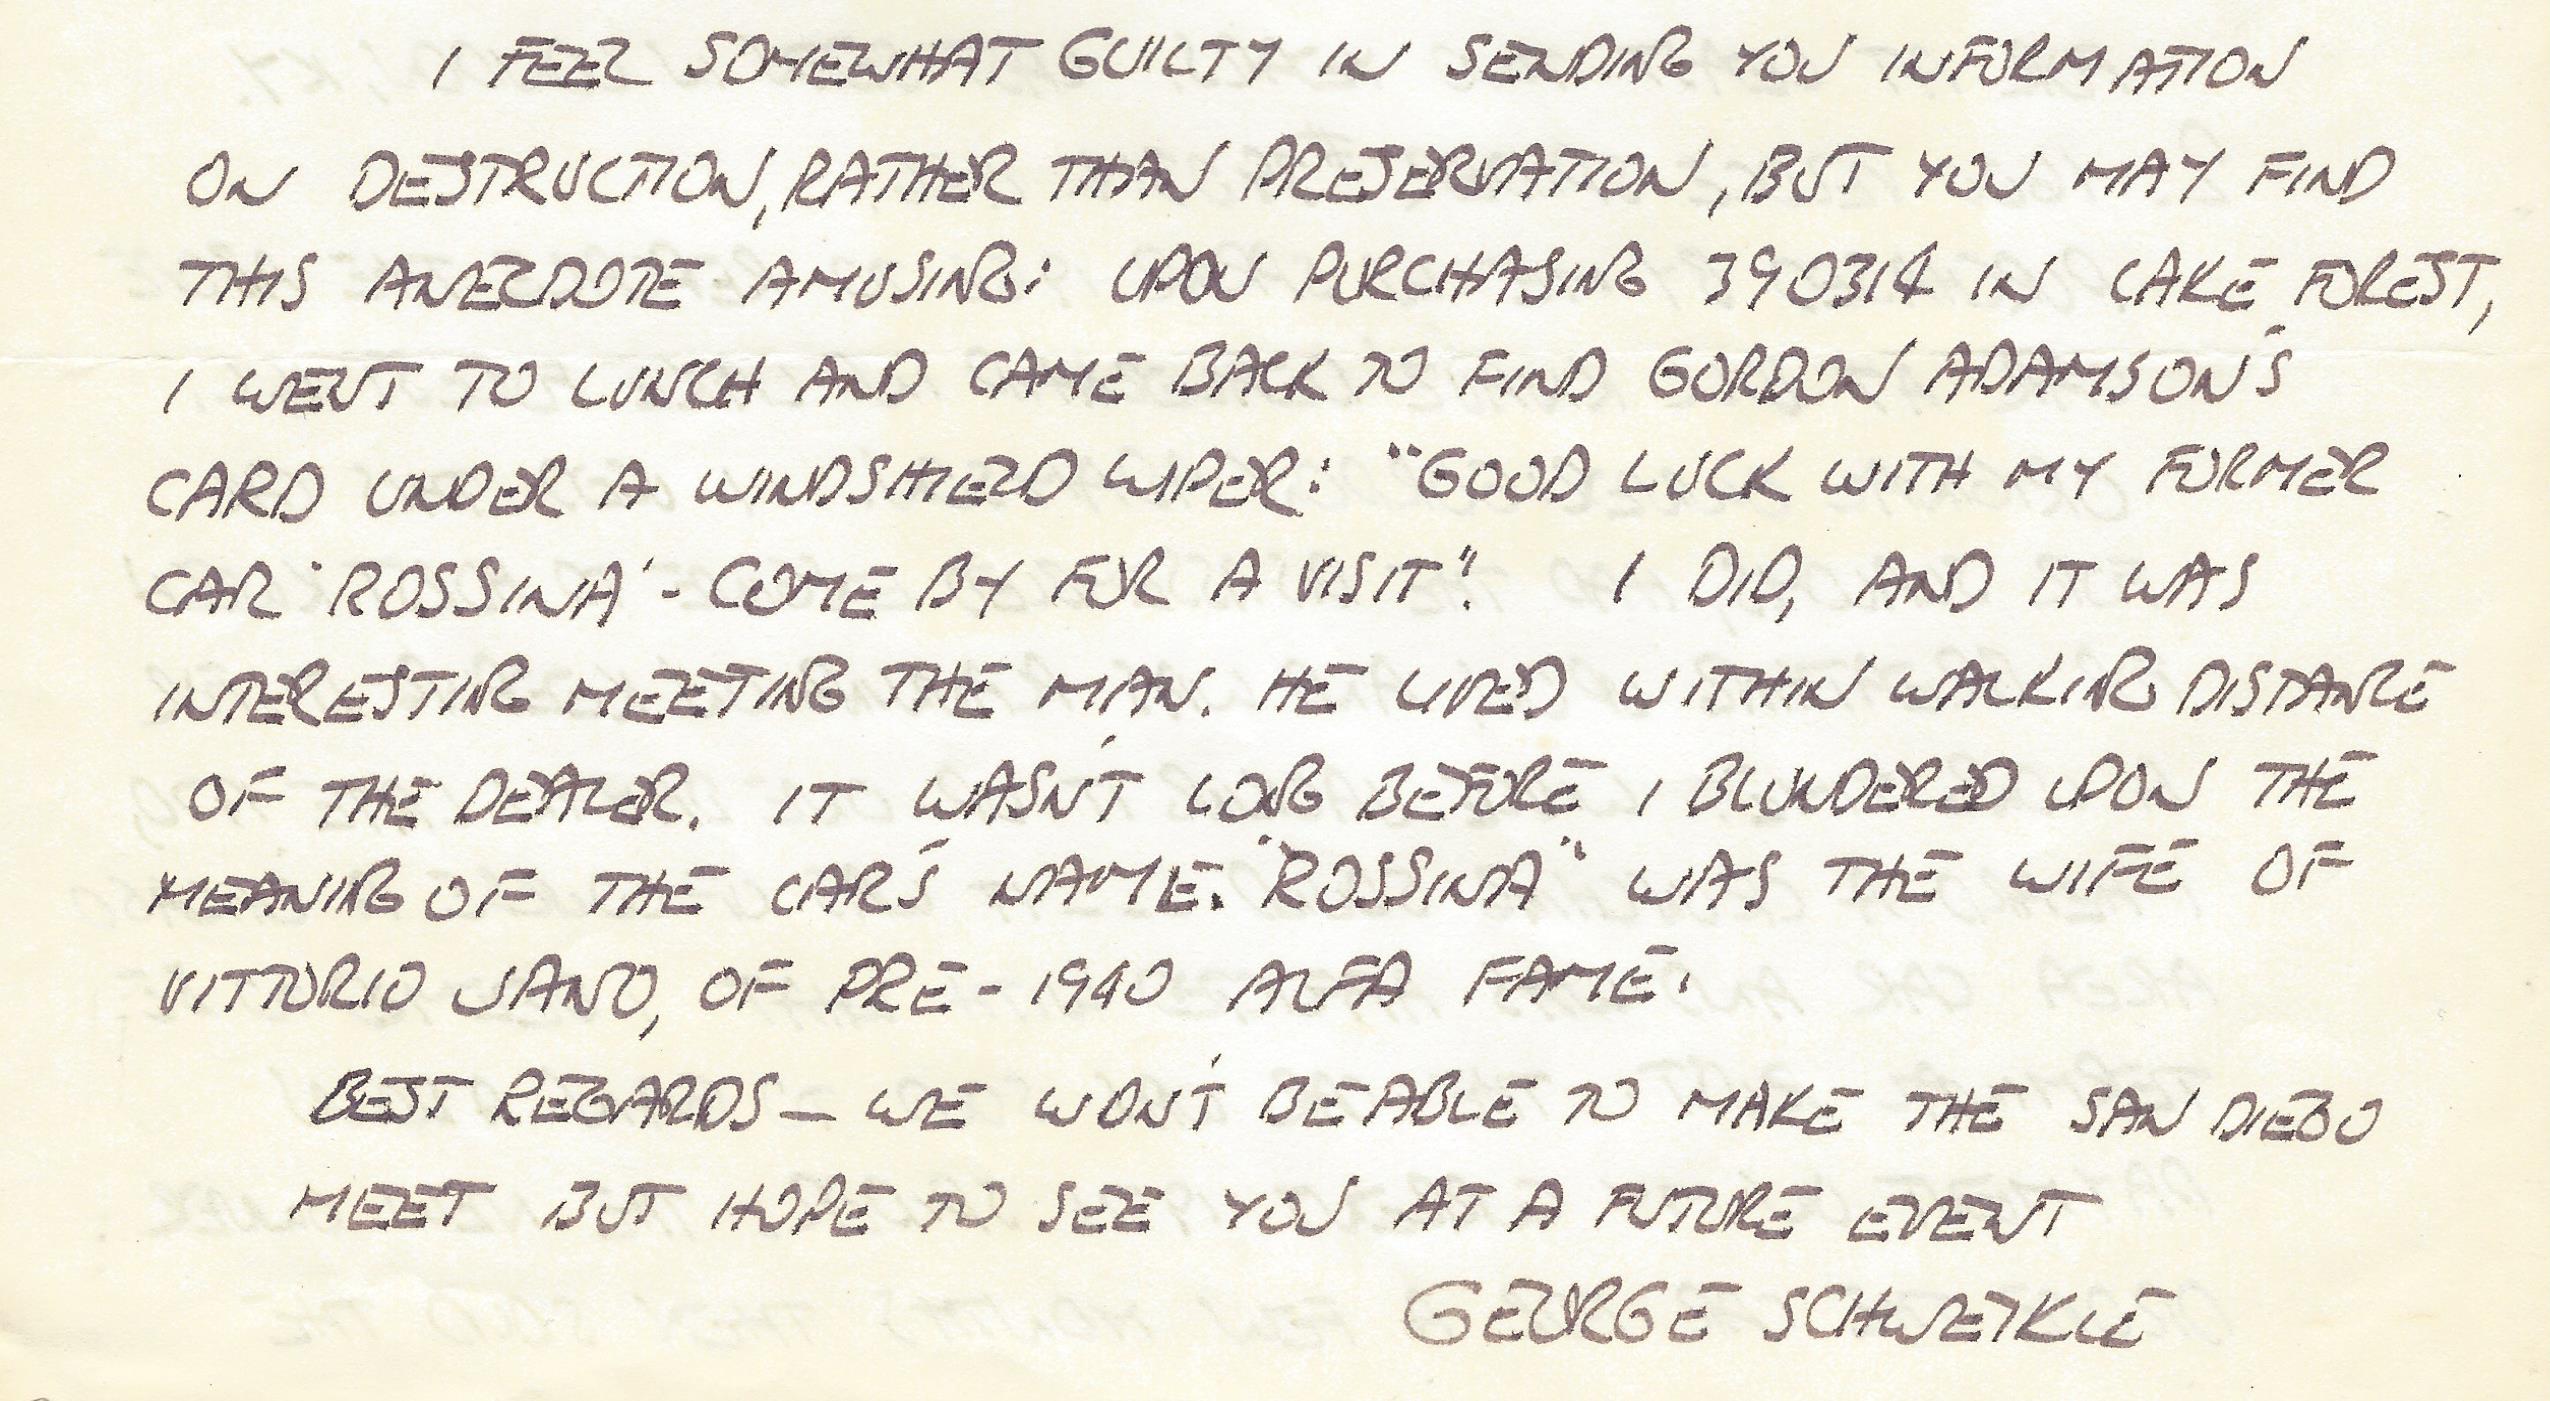 I FEEL SOMEWHAT GUILTY IN SENDING YOU INFORMATION
ON DESTRUCTION, RATHER THAN PRESERVATION, BUT YOU MAY FIND
THIS ANECDOTE AMUSING: UPON PURCHASING 390314 IN LAKE FOREST,
I WENT TO LUNCH AND CAME BACK TO FIND GORDON ADAMSON'S
CARD UNDER A WINDSHIELD WIPER: "GOOD LUCK WITH MY FORMER
CAR 'ROSSINA' - COME BY FOR A VISIT"! I DID, AND IT WAS
INTERESTING MEETING THE MAN. HE LIVED WITHIN WALKING DISTANCE
OF THE DEALER. IT WASN'T LONG BEFORE I BLUNDERED UPON THE
MEANING OF THE CAR'S NAME. "ROSSINA" WAS THE WIFE OF
VITTORIO JANO, OF PRE-1940 ALFA FAME.
BEST REGARDS — WE WON'T BE ABLE TO MAKE THE SAN DIEGO
MEET BUT HOPE TO SEE YOU AT A FUTURE EVENT
GEORGE SCHWEIKLE